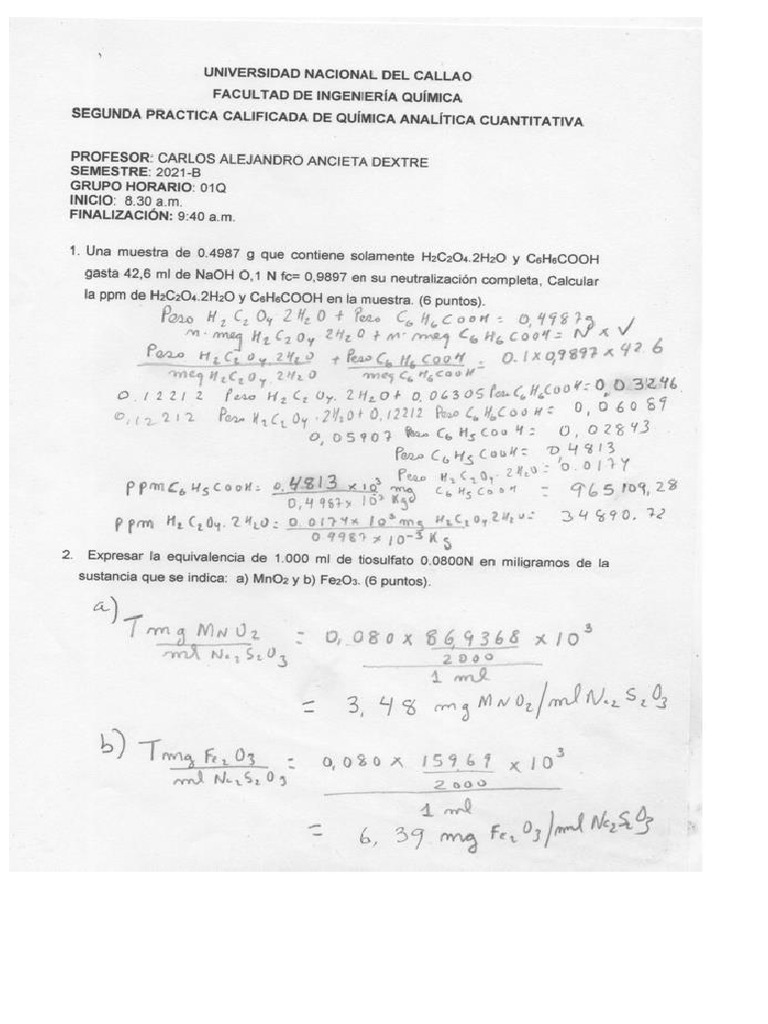 UNIVERSIDAD NACIONAL DEL CALLAO
FACULTAD DE INGENIERÍA QUÍMICA
SEGUNDA PRACTICA CALIFICADA DE QUÍMICA ANALÍTICA CUANTITATIVA
PROFESOR: CARLOS ALEJANDRO ANCIETA DEXTRE
SEMESTRE: 2021-B
GRUPO HORARIO: 01Q
INICIO: 8.30 a.m.
FINALIZACIÓN: 9:40 a.m.
1. Una muestra de 0.4987 g que contiene solamente H2C2O4.2H2O y C6H6COOH
gasta 42,6 ml de NaOH O,1 N fc= 0,9897 en su neutralización completa, Calcular
la ppm de H2C2O4.2H2O y C6H6COOH en la muestra. (6 puntos).
Peso H2C2O4 2H2O + Peso C6H6COOH = 0,4987g
n· meq H2C2O4 2H2O + n· meq C6H6COOH = N x V
Peso H2C2O4.2H2O + Peso C6H6COOH = 0.1 x 0,9897 x 42.6
meq H2C2O4.2H2O meq C6H6COOH
0.12212 Peso H2C2O4.2H2O + 0.06305 Peso C6H6COOH = 0,03246
0,12212 Peso H2C2O4.2H2O + 0,12212 Peso C6H6COOH = 0,06089
0,05907 Peso C6H5COOH = 0,02843
Peso C6H5COOH = 0,4813
Peso H2C2O4.2H2O = 0.0174
ppm C6H5COOH = 0.4813 x 10³ mg C6H5COOH = 965109,28
0,4987 x 10³ Kgo
ppm H2C2O4.2H2O = 0.0174 x 10³ mg H2C2O4 2H2O = 34890.72
0.9987 x 10⁻³ Kg
2. Expresar la equivalencia de 1.000 ml de tiosulfato 0.0800N en miligramos de la
sustancia que se indica: a) MnO2 y b) Fe2O3. (6 puntos).
a) T mg MnO2 = 0,080 x 86,9368 x 10³
ml Na2S2O3 2000
1 ml
= 3,48 mg MnO2/ml Na2S2O3
b) T mg Fe2O3 = 0,080 x 159,69 x 10³
ml Na2S2O3 2000
1 ml
= 6,39 mg Fe2O3/ml Na2S2O3